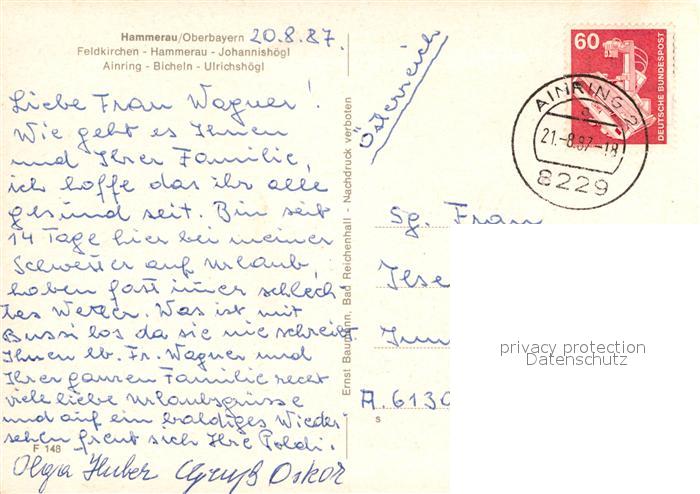 Hammerau/Oberbayern 20.8.87.
Feldkirchen - Hammerau - Johannishögl
Ainring - Bicheln - Ulrichshögl
Liebe Frau Wagner!
Wie geht es Ihnen
und Ihrer Familie,
ich hoffe das ihr alle
gesund seit. Bin seit
14 Tage hier bei meiner
Schwester auf Urlaub,
haben fast imer schlech-
tes Wetter. Was ist mit
Bussi los da sie nie schreibt
Ihnen lb. Fr. Wagner und
Ihrer ganzen Familie recht
viele liebe Urlaubsgrüsse
und auf ein baldiges Wieder
sehen freut sich Ihre Poldi.
F 148
Olga Huber Gruß Oskar
Ernst Baumann, Bad Reichenhall - Nachdruck verboten
Österreich
60
DEUTSCHE BUNDESPOST
AINRING 2
21.-8.87-18
8229
Sg. Frau
Ilse
A. 6130
s
privacy protection
Datenschutz